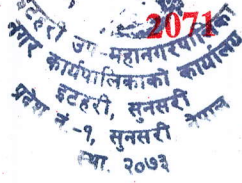 2071
इटहरी उप-महानगरपालिका
नगर कार्यपालिकाको कार्यालय
इटहरी, सुनसरी
प्रदेश नं.-१, सुनसरी नेपाल
स्था. २०७३